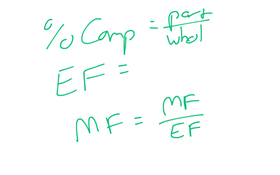 % Comp = part/whol
EF =
MF = MF/EF